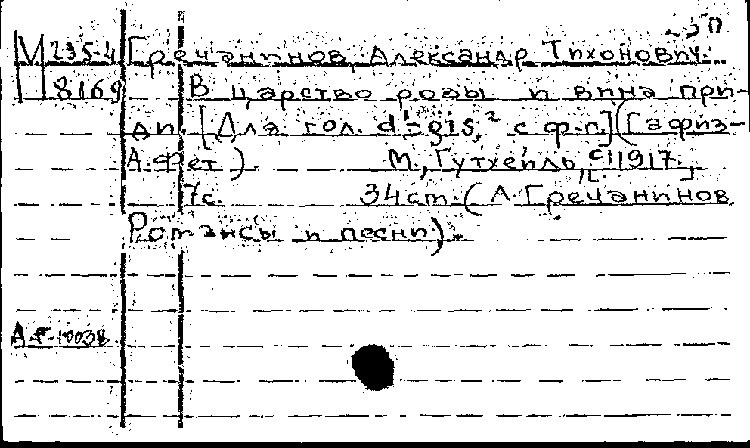 М 235-4 Гречанинов, Александр Тихонович.
8169 В царство розы и вина при-
ди. [Для гол. d¹-gis² с ф.-п.] (Гафиз-
А. Фет) М., Гутхейль, [1917].
7с. 34 ст. (А. Гречанинов
Романсы и песни).